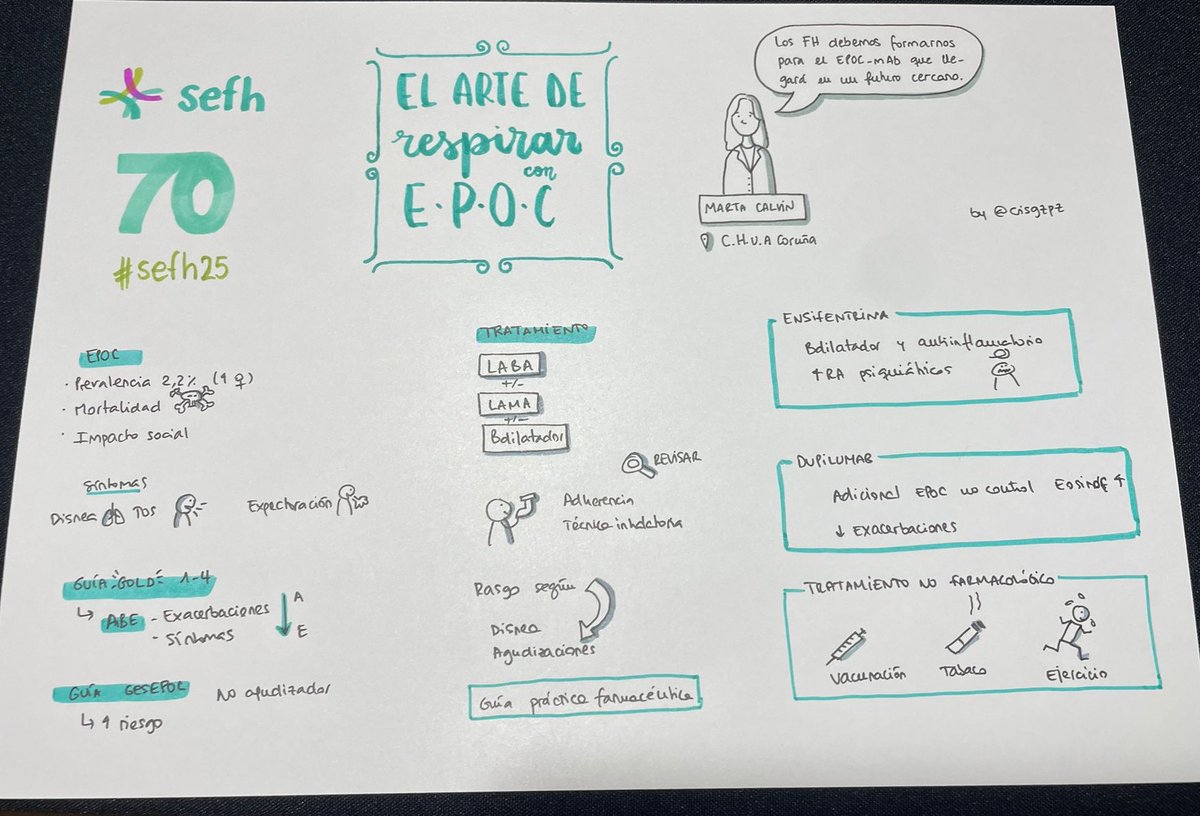 sefh
70
#sefh25
EL ARTE DE
respirar
con
E·P·O·C
Los FH debemos formarnos
para el EPOC-mAb que lle-
gará en un futuro cercano.
MARTA CALVIN
C.H.U.A Coruña
by @crisgzpz
EPOC
· Prevalencia 2,2% (↑♀)
· Mortalidad
· Impacto social
Síntomas
Disnea TOS Expectoración
GUÍA GOLD 1-4
↳ ABE - Exacerbaciones
- Síntomas
A
E
GUÍA GESEPOC No agudizador
↳ ↑ riesgo
TRATAMIENTO
LABA
+/-
LAMA
+/-
Bdilatador
REVISAR
Adherencia
Técnica inhalatoria
Rasgo según
Disnea
Agudizaciones
Guía práctica farmacéutica
ENSIFENTRINA
Bdilatador y antiinflamatorio
↑RA psiquiátricos
DUPILUMAB
Adicional EPOC no control Eosinof ↑
↓ Exacerbaciones
TRATAMIENTO NO FARMACOLÓGICO
Vacunación
Tabaco
Ejercicio